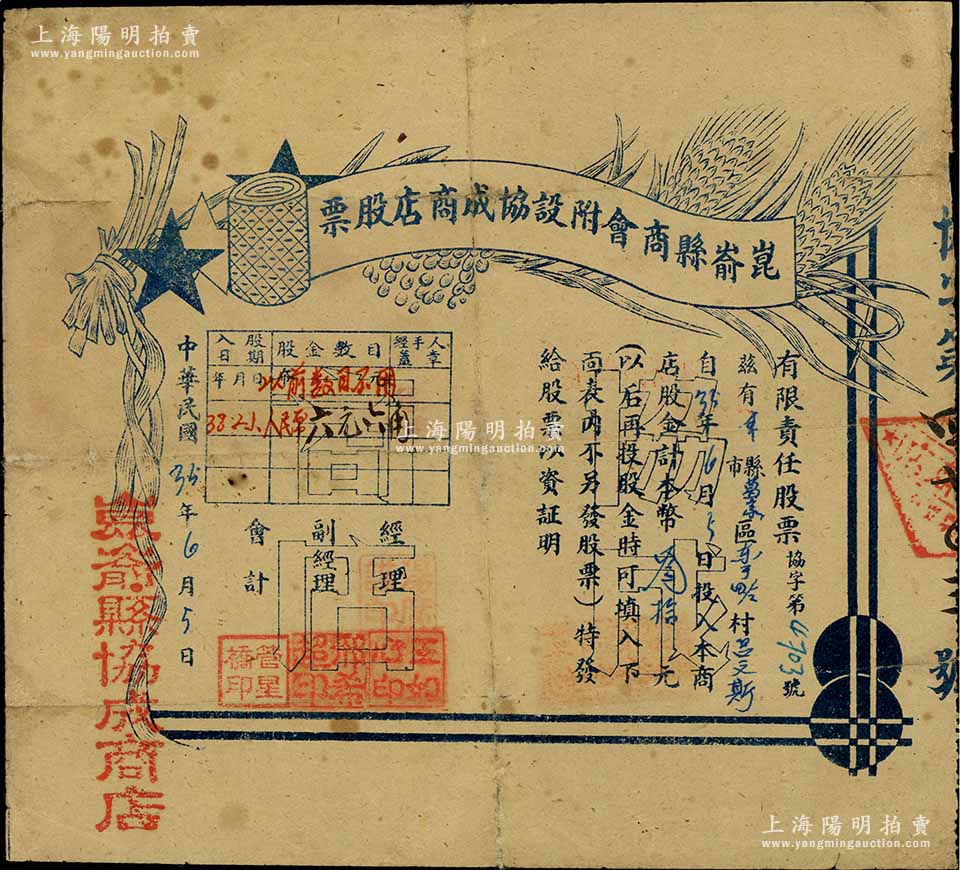 上海陽明拍賣
www.yangmingauction.com
崑嵛縣商會附設協成商店股票
有限責任股票 協字第4703號
茲有 縣市 區 村
自35年6月5日投入本商
店股金計本幣 拾元
(以后再投股金時可填入下
面表內不另發股票)特發
給股票以資証明
入股日期 股金數目 經手人蓋章
年月日 以前數目不用
38.2.1. 人民票六元六角
經理
副經理
會計
中華民國35年6月5日
崑嵛縣協成商店
曾星橋印
上海陽明拍賣
www.yangmingauction.com
上海陽明拍賣
www.yangmingauction.com